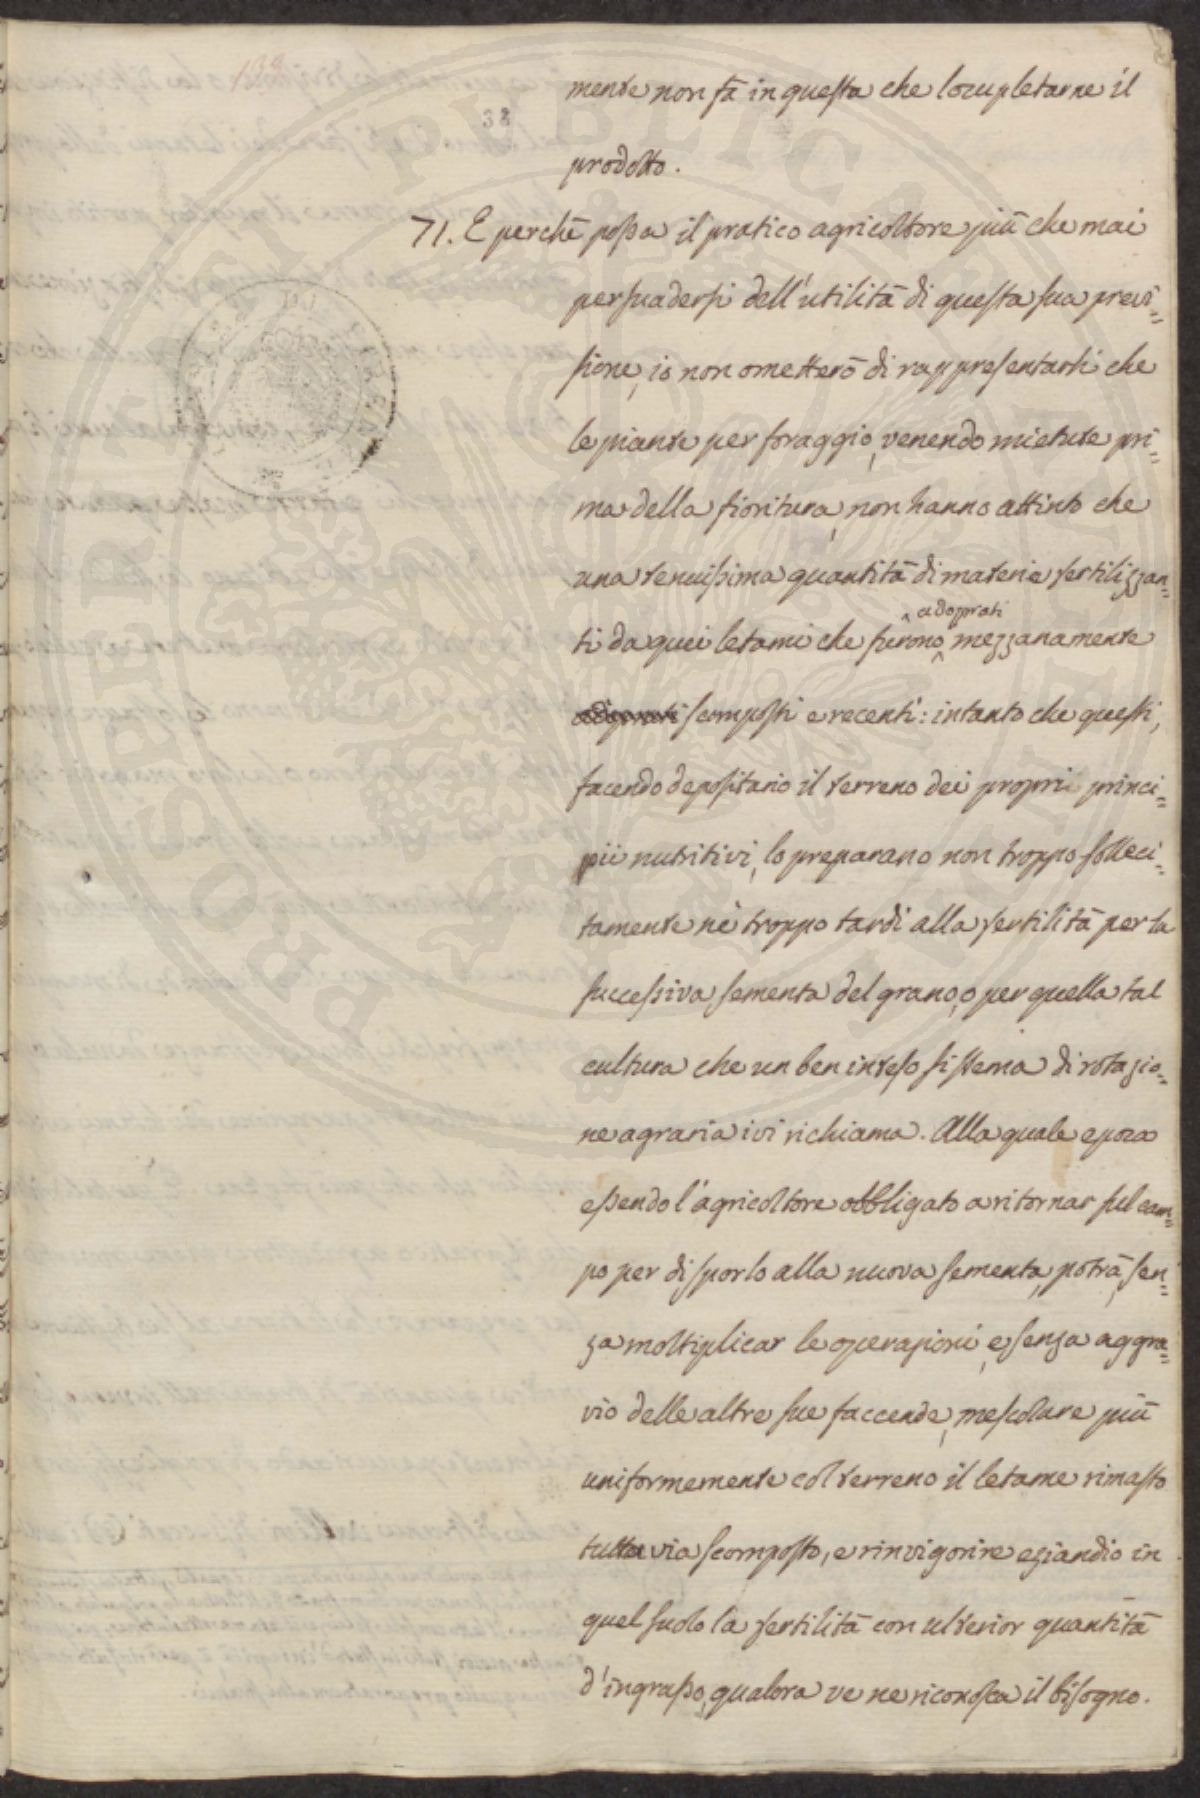 138
38
mente non fà in questa che locupletarne il
prodotto.
71. E perchè possa il pratico agricoltore più che mai
persuadersi dell'utilità di questa sua previ=
sione, io non ometterò di rappresentarli che
le piante per foraggio, venendo mietute pri=
ma della fioritura, non hanno attinto che
una tenuissima quantità di materie fertilizzan=
adoprati
ti da quei letami che furono mezzanamente
adoprati scomposti e recenti: intanto che questi,
facendo depositario il terreno dei proprii princi=
pii nutritivi, lo preparano non troppo solleci=
tamente nè troppo tardi alla fertilità per la
successiva sementa del grano, o per quella tal
cultura che un ben inteso sistema di rotazio=
ne agraria ivi richiama. Alla quale epoca
essendo l'agricoltore obbligato a ritornar sul cam=
po per disporlo alla nuova sementa, potrà, sen=
za moltiplicar le operazioni, e senza aggra=
vio delle altre sue faccende, mescolare più
uniformemente col terreno il letame rimasto
tuttavia scomposto, e rinvigorire eziandio in
quel suolo la fertilità con ulterior quantità
d'ingrasso, qualora ve ne riconosca il bisogno.